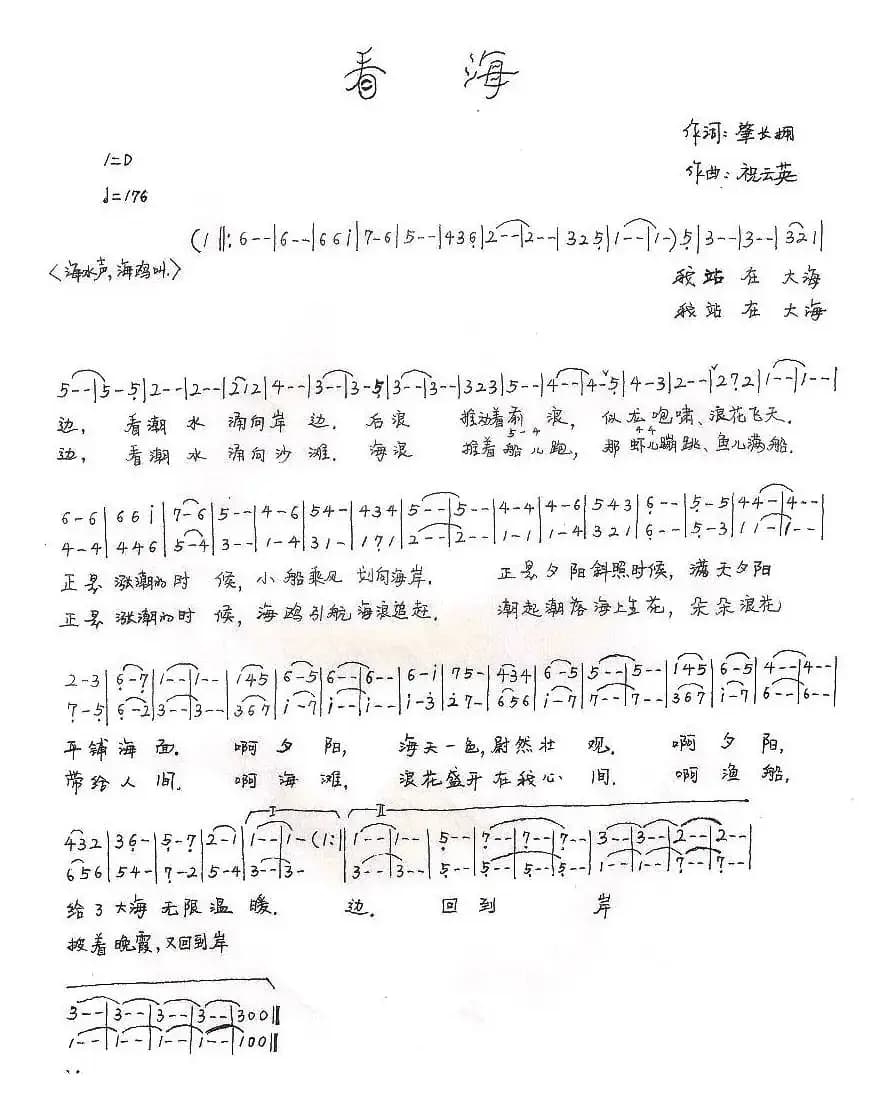 看 海
作词：肇长娴
1=D
作曲：祝云英
♩=176
(1 ‖: 6 - - | 6 - - | 6 6 i | 7 - 6 | 5 - - | 4 3 6 | 2 - - | 2 - - | 3 2 5 | 1 - - | 1 - ) 5 | 3 - - | 3 - - | 3 2 1 |
<海水声，海鸥叫.>
我 站 在 大 海
我 站 在 大 海
5 - - | 5 - 5 | 2 - - | 2 - - | 2 1 2 | 4 - - | 3 - - | 3 - 5 | 3 - - | 3 - - | 3 2 3 | 5 - - | 4 - - | 4 - 5 | 4 - 3 | 2 - - | 2 7 2 | 1 - - | 1 - - |
边， 看 潮 水 涌 向 岸 边. 后 浪 推动着 前 浪， 似 龙 咆 啸、浪 花 飞 天.
5 - 4 4 4
边， 看 潮 水 涌 向 沙 滩. 海 浪 推着 船 儿 跑， 那 虾儿 蹦 跳、鱼 儿 满 船.
6 - 6 | 6 6 i | 7 - 6 | 5 - - | 4 - 6 | 5 4 - | 4 3 4 | 5 - - | 5 - - | 4 - 4 | 4 - 6 | 5 4 3 | 6 - - | 5 - 5 | 4 4 - | 4 - - |
4 - 4 | 4 4 6 | 5 - 4 | 3 - - | 1 - 4 | 3 1 - | 1 7 1 | 2 - - | 2 - - | 1 - 1 | 1 - 4 | 3 2 1 | 6 - - | 5 - 3 | 1 1 - | 1 - - |
正是 涨潮的时 候，小 船 乘风 划向海岸. 正是 夕 阳 斜照时候，满 天 夕阳
正是 涨潮的时 候，海 鸥引航 海浪追赶. 潮起 潮落 海上生花， 朵 朵 浪花
2 - 3 | 6 - 7 | 1 - - | 1 - - | 1 4 5 | 6 - 5 | 6 - - | 6 - - | 6 - i | 7 5 - | 4 3 4 | 6 - 5 | 5 - - | 5 - - | 1 4 5 | 6 - 5 | 4 - - | 4 - - |
7 - 5 | 6 - 2 | 3 - - | 3 - - | 3 6 7 | i - 7 | i - - | i - - | i - 3 | 2 7 - | 6 5 6 | i - 7 | 7 - - | 7 - - | 3 6 7 | i - 7 | 6 - - | 6 - - |
平 铺 海 面. 啊 夕 阳， 海 天 一 色，蔚 然 壮 观. 啊 夕 阳，
带 给 人 间. 啊 海 滩， 浪 花 盛 开 在 我 心 间. 啊 渔 船，
I II
4 3 2 | 3 6 - | 5 - 7 | 2 - 1 | 1 - - | 1 - (1 :‖ 1 - - | 1 - - | 5 - - | 7 - - | 7 - - | 7 - - | 3 - - | 3 - - | 2 - - | 2 - - |
6 5 6 | 5 4 - | 7 - 2 | 5 - 4 | 3 - - | 3 - 3 - - | 3 - - | 5 - - | 5 - - | 5 - - | 5 - - | 1 - - | 1 - - | 7 - - | 7 - - |
给 了 大 海 无 限 温 暖. 边. 回 到 岸
披 着 晚 霞，又 回 到 岸
3 - - | 3 - - | 3 - - | 3 - - | 3 0 0 ‖
1 - - | 1 - - | 1 - - | 1 - - | 1 0 0 ‖